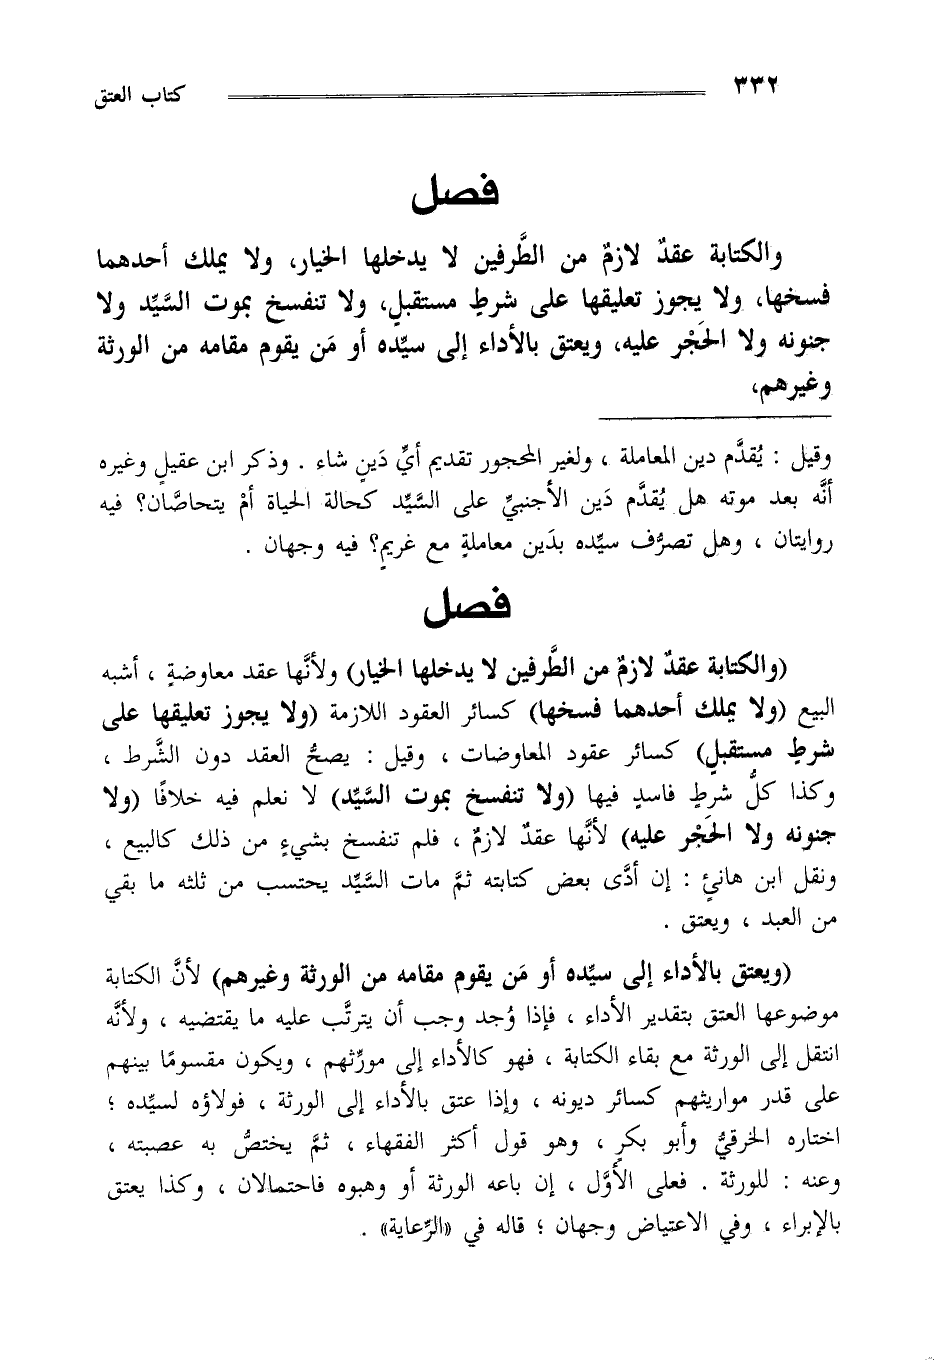 ٣٣٢ كتاب العتق
فصل
والكتابة عقدٌ لازمٌ من الطَّرفين لا يدخلها الخيار، ولا يملك أحدهما
فسخها، ولا يجوز تعليقها على شرطٍ مستقبلٍ، ولا تنفسخ بموت السَّيِّد ولا
جنونه ولا الحَجْر عليه، ويعتق بالأداء إلى سيِّده أو مَن يقوم مقامه من الورثة
وغيرهم،
وقيل : يُقدَّم دين المعاملة ، ولغير المحجور تقديم أيِّ دَينٍ شاء . وذكر ابن عقيلٍ وغيره
أنَّه بعد موته هل يُقدَّم دَين الأجنبيِّ على السَّيِّد كحالة الحياة أمْ يتحاصَّان؟ فيه
روايتان ، وهل تصرُّف سيِّده بدَين معاملةٍ مع غريمٍ؟ فيه وجهان .
فصل
(والكتابة عقدٌ لازمٌ من الطَّرفين لا يدخلها الخيار) ولأنَّها عقد معاوضةٍ ، أشبه
البيع (ولا يملك أحدهما فسخها) كسائر العقود اللازمة (ولا يجوز تعليقها على
شرطٍ مستقبلٍ) كسائر عقود المعاوضات ، وقيل : يصحُّ العقد دون الشَّرط ،
وكذا كلُّ شرطٍ فاسدٍ فيها (ولا تنفسخ بموت السَّيِّد) لا نعلم فيه خلافًا (ولا
جنونه ولا الحَجْر عليه) لأنَّها عقدٌ لازمٌ ، فلم تنفسخ بشيءٍ من ذلك كالبيع ،
ونقل ابن هانئٍ : إن أدَّى بعض كتابته ثمَّ مات السَّيِّد يحتسب من ثلثه ما بقي
من العبد ، ويعتق .
(ويعتق بالأداء إلى سيِّده أو مَن يقوم مقامه من الورثة وغيرهم) لأنَّ الكتابة
موضوعها العتق بتقدير الأداء ، فإذا وُجد وجب أن يترتَّب عليه ما يقتضيه ، ولأنَّه
انتقل إلى الورثة مع بقاء الكتابة ، فهو كالأداء إلى مورِّثهم ، ويكون مقسومًا بينهم
على قدر مواريثهم كسائر ديونه ، وإذا عتق بالأداء إلى الورثة ، فولاؤه لسيِّده ؛
اختاره الخرقيُّ وأبو بكرٍ ، وهو قول أكثر الفقهاء ، ثمَّ يختصُّ به عصبته ،
وعنه : للورثة . فعلى الأوَّل ، إن باعه الورثة أو وهبوه فاحتمالان ، وكذا يعتق
بالإبراء ، وفي الاعتياض وجهان ؛ قاله في «الرِّعاية» .